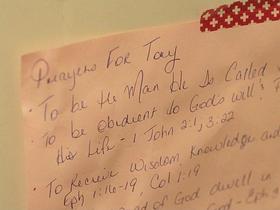 Prayers For Tay
· To be the Man He Is Called
· To be Obedient to God's will &
His Life - 1 John 2:1, 3:22
· To Recieve Wisdom, Knowledge and
Eph 1:16-19, Col 1:19
of God dwell in
God - Eph